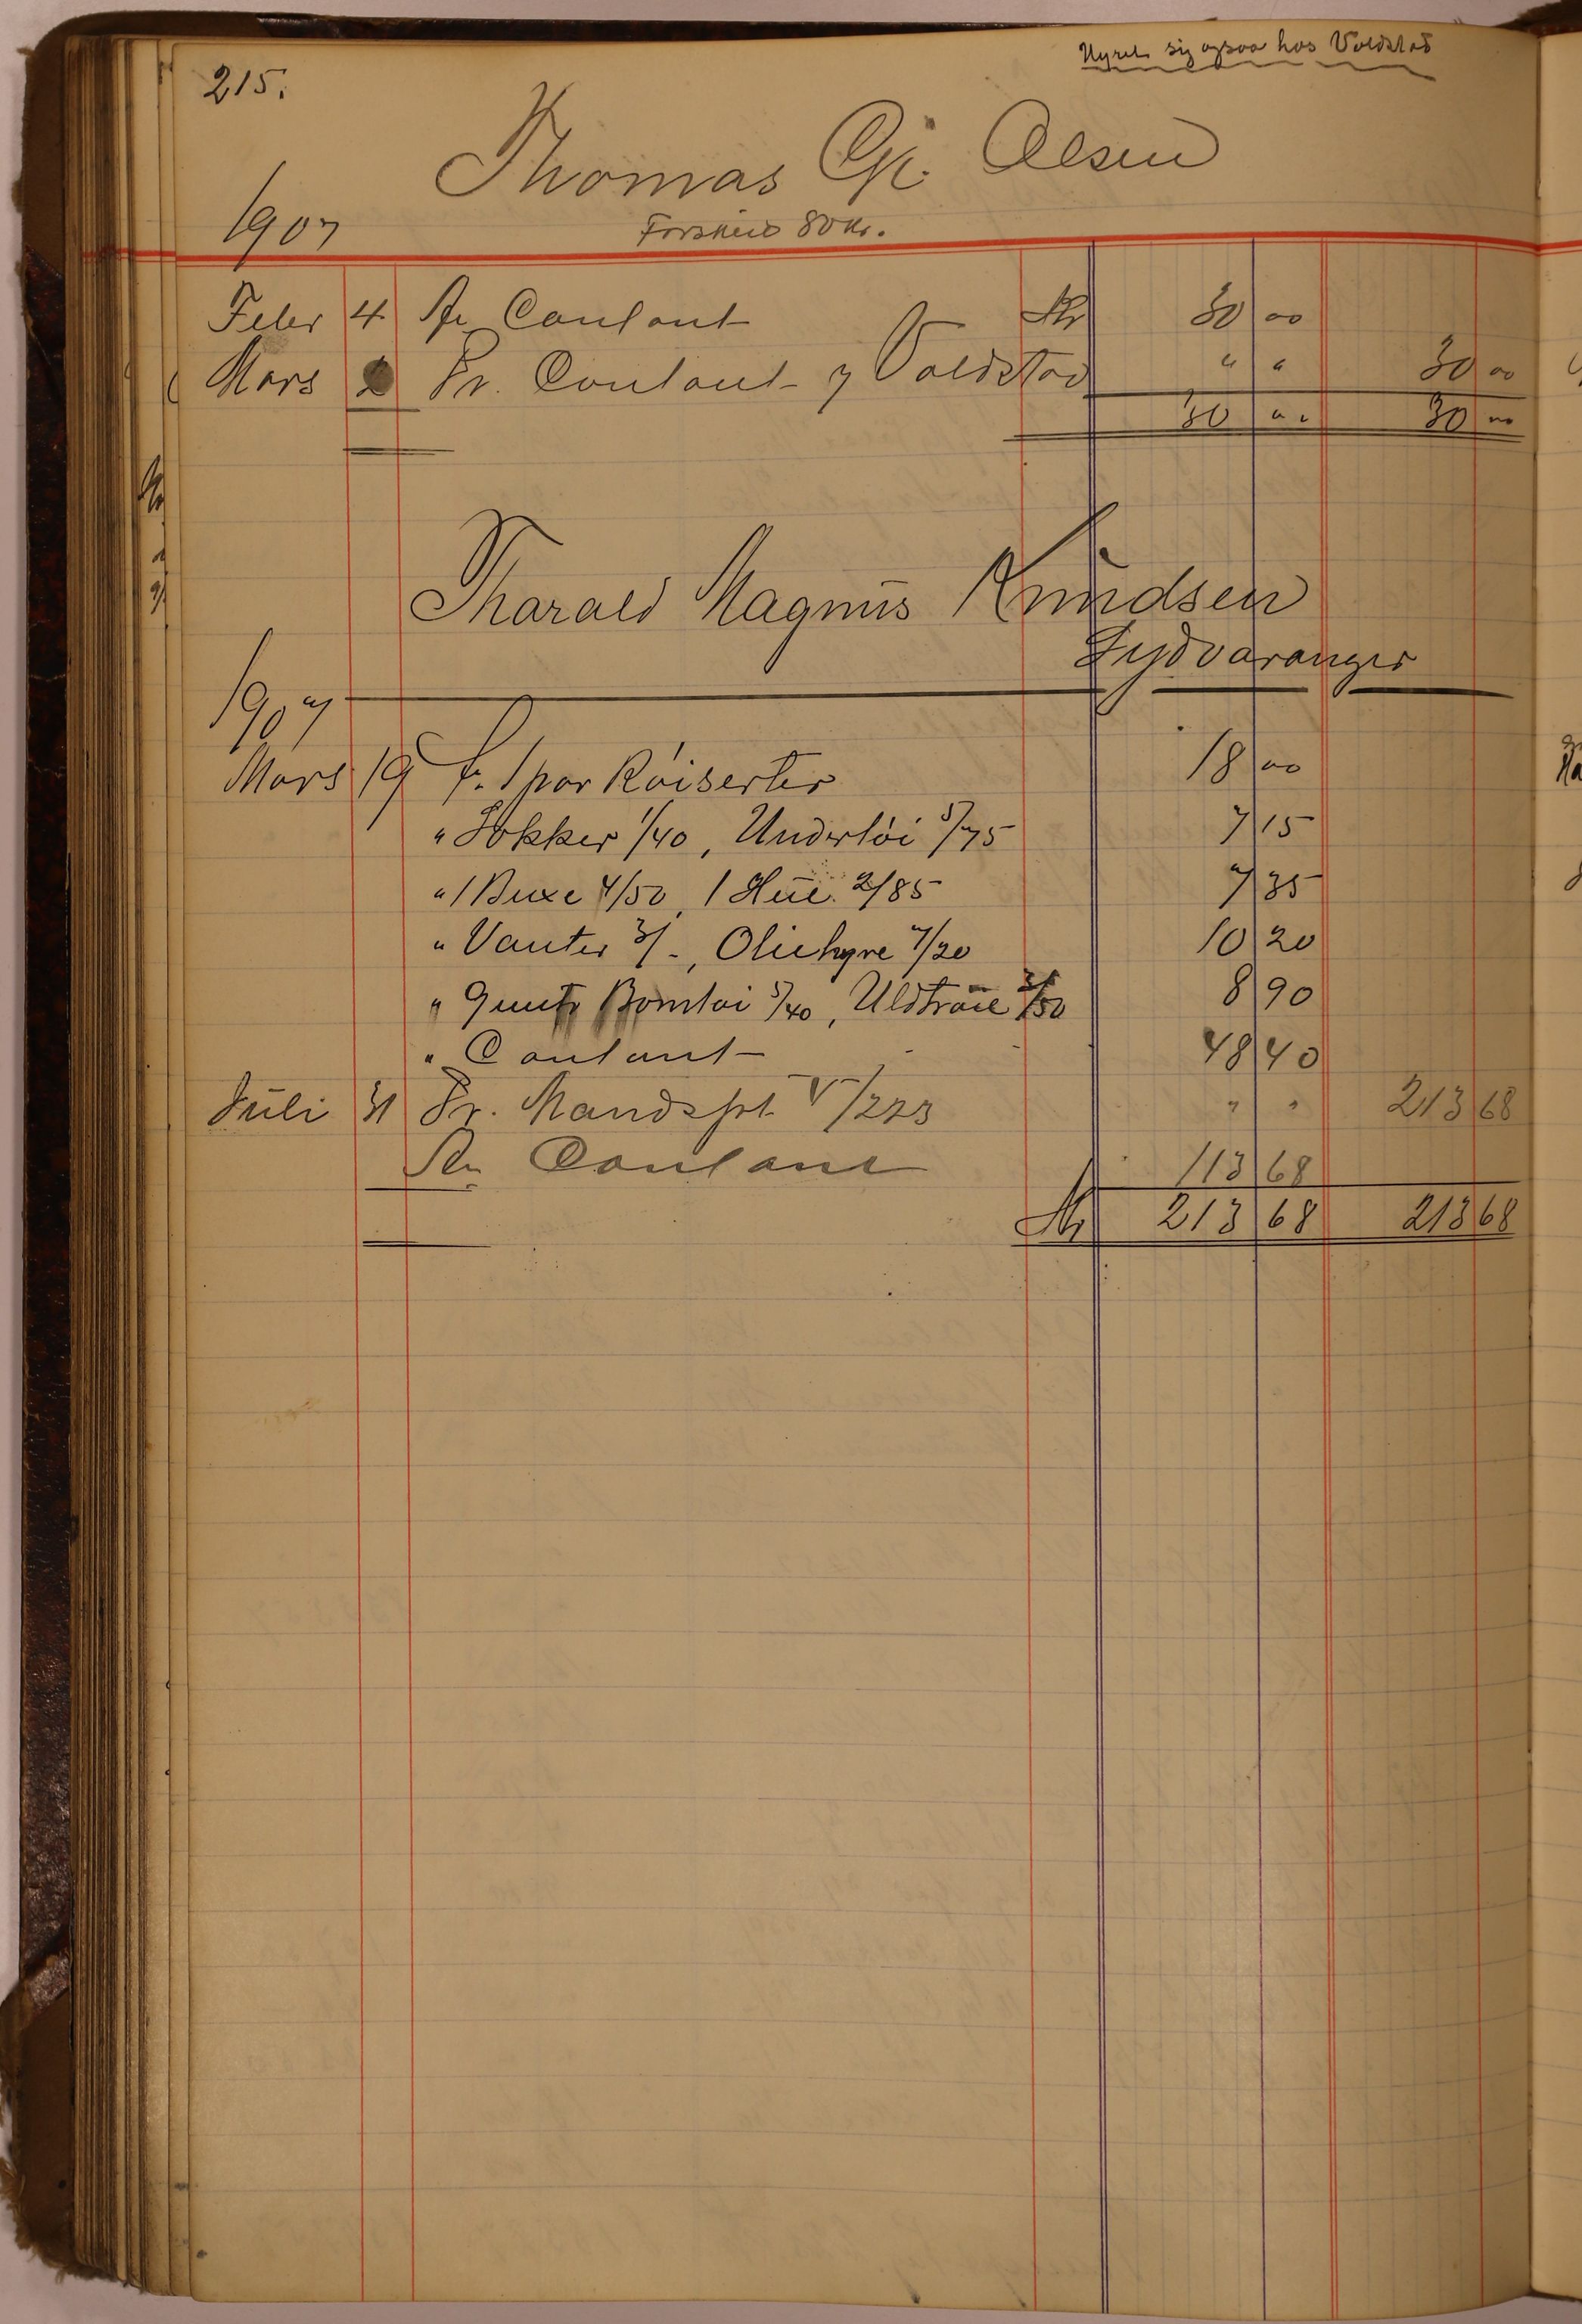 Hyret sig ogsaa hos Voldstad
215.
Thomas Chr. Olsen
1907 Forskud 80 Kr.
Febr 4 An Contant Kr 30 00
Mars 2 Pr. Contant Voldstad " " 30 00
30 00 30 00
Tharald Magnus Knudsen
Sydvaranger
1907
Mars 19 1 par Röiserter 18 00
" Sokker 1/40, Undertöi 5/75 7 15
" 1 Buxe 4/50, 1 Hue 2/85 7 35
" Vanter 3/-, Oliehyre 7/20 10 20
" Bomtöi 5/40, Uldtröie 3/50 8 90
" Contant 48 40
Juli 31 Pr. Mandskt V/223 " " 213 68
An Contant 113 68
Kr 213 68 213 68